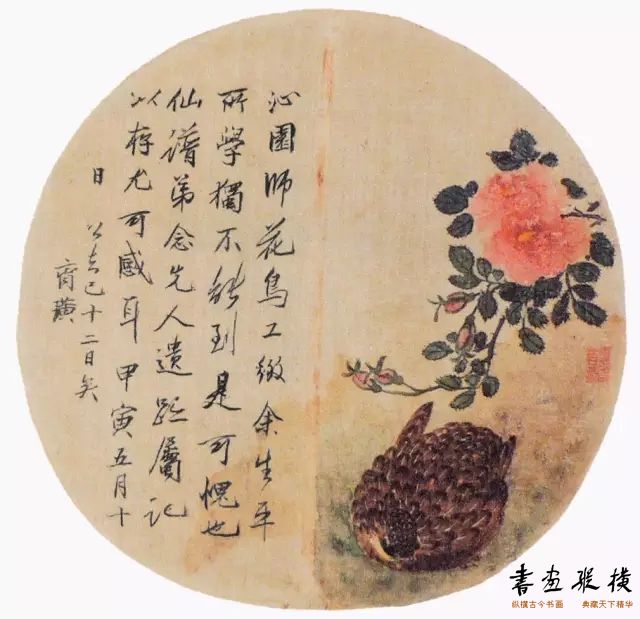 沁園師花鳥工緻余生平
所學獨不能到是可愧也
仙譜弟念先人遺跡屬記
以存尤可感耳甲寅五月十
日 公去已十二日矣
齊璜
書畫縱橫
纵横古今书画 典藏天下精华